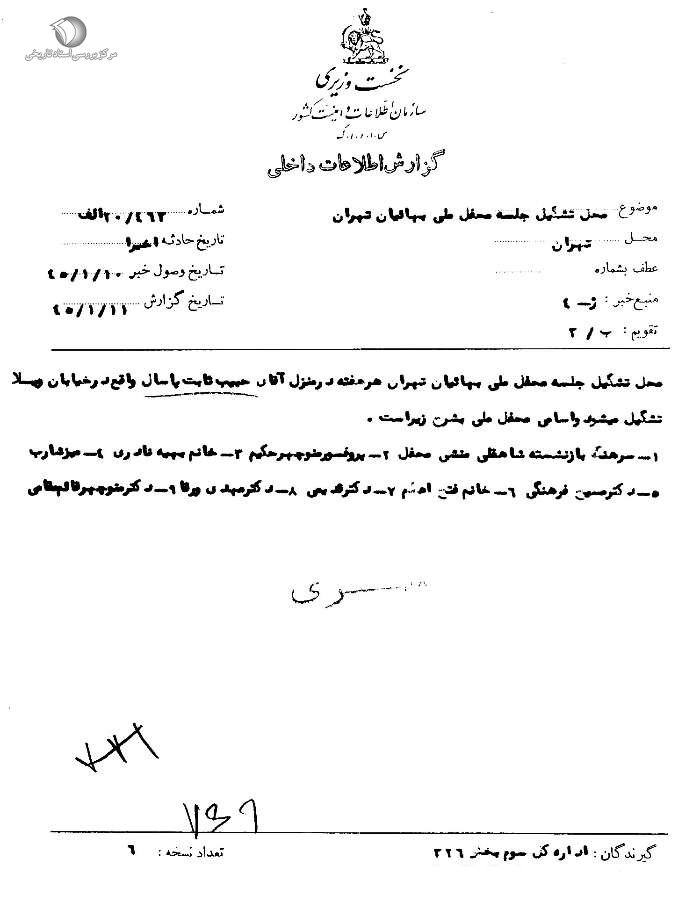 مرکز بررسی اسناد تاریخی
نخست وزیری
سازمان اطلاعات و امنیت کشور
س.ا.و.ا.ک
گزارش اطلاعات داخلی
موضوع محل تشکیل جلسه محفل ملی بهائیان تهران
شماره ۲۰/۴۶۳الف
محل تهران
تاریخ حادثه اخیرا
عطف بشماره
تاریخ وصول خبر ۴۵/۱/۱۰
منبع خبر : ژ-۴
تاریخ گزارش ۴۵/۱/۱۱
تقویم : ب/۲
محل تشکیل جلسه محفل ملی بهائیان تهران هر هفته در منزل آقای حبیب ثابت پاسال واقع در خیابان ویلا
تشکیل میشود واسامی محفل ملی بشرح زیراست .
۱- سرهنگ بازنشسته شاهقلی منشی محفل ۲- پروفسور منوچهر حکیم ۳- خانم بهیه نادری ۴- میثاقیه
۵- دکتر حسین فرهنگی ۶- خانم فتح اعظم ۷- دکتر قدیمی ۸- دکتر مهدی ورقا ۹- دکتر منوچهر قائم مقامی
سری
گیرندگان : اداره کل سوم بخش ۳۲۶
تعداد نسخه : ۶